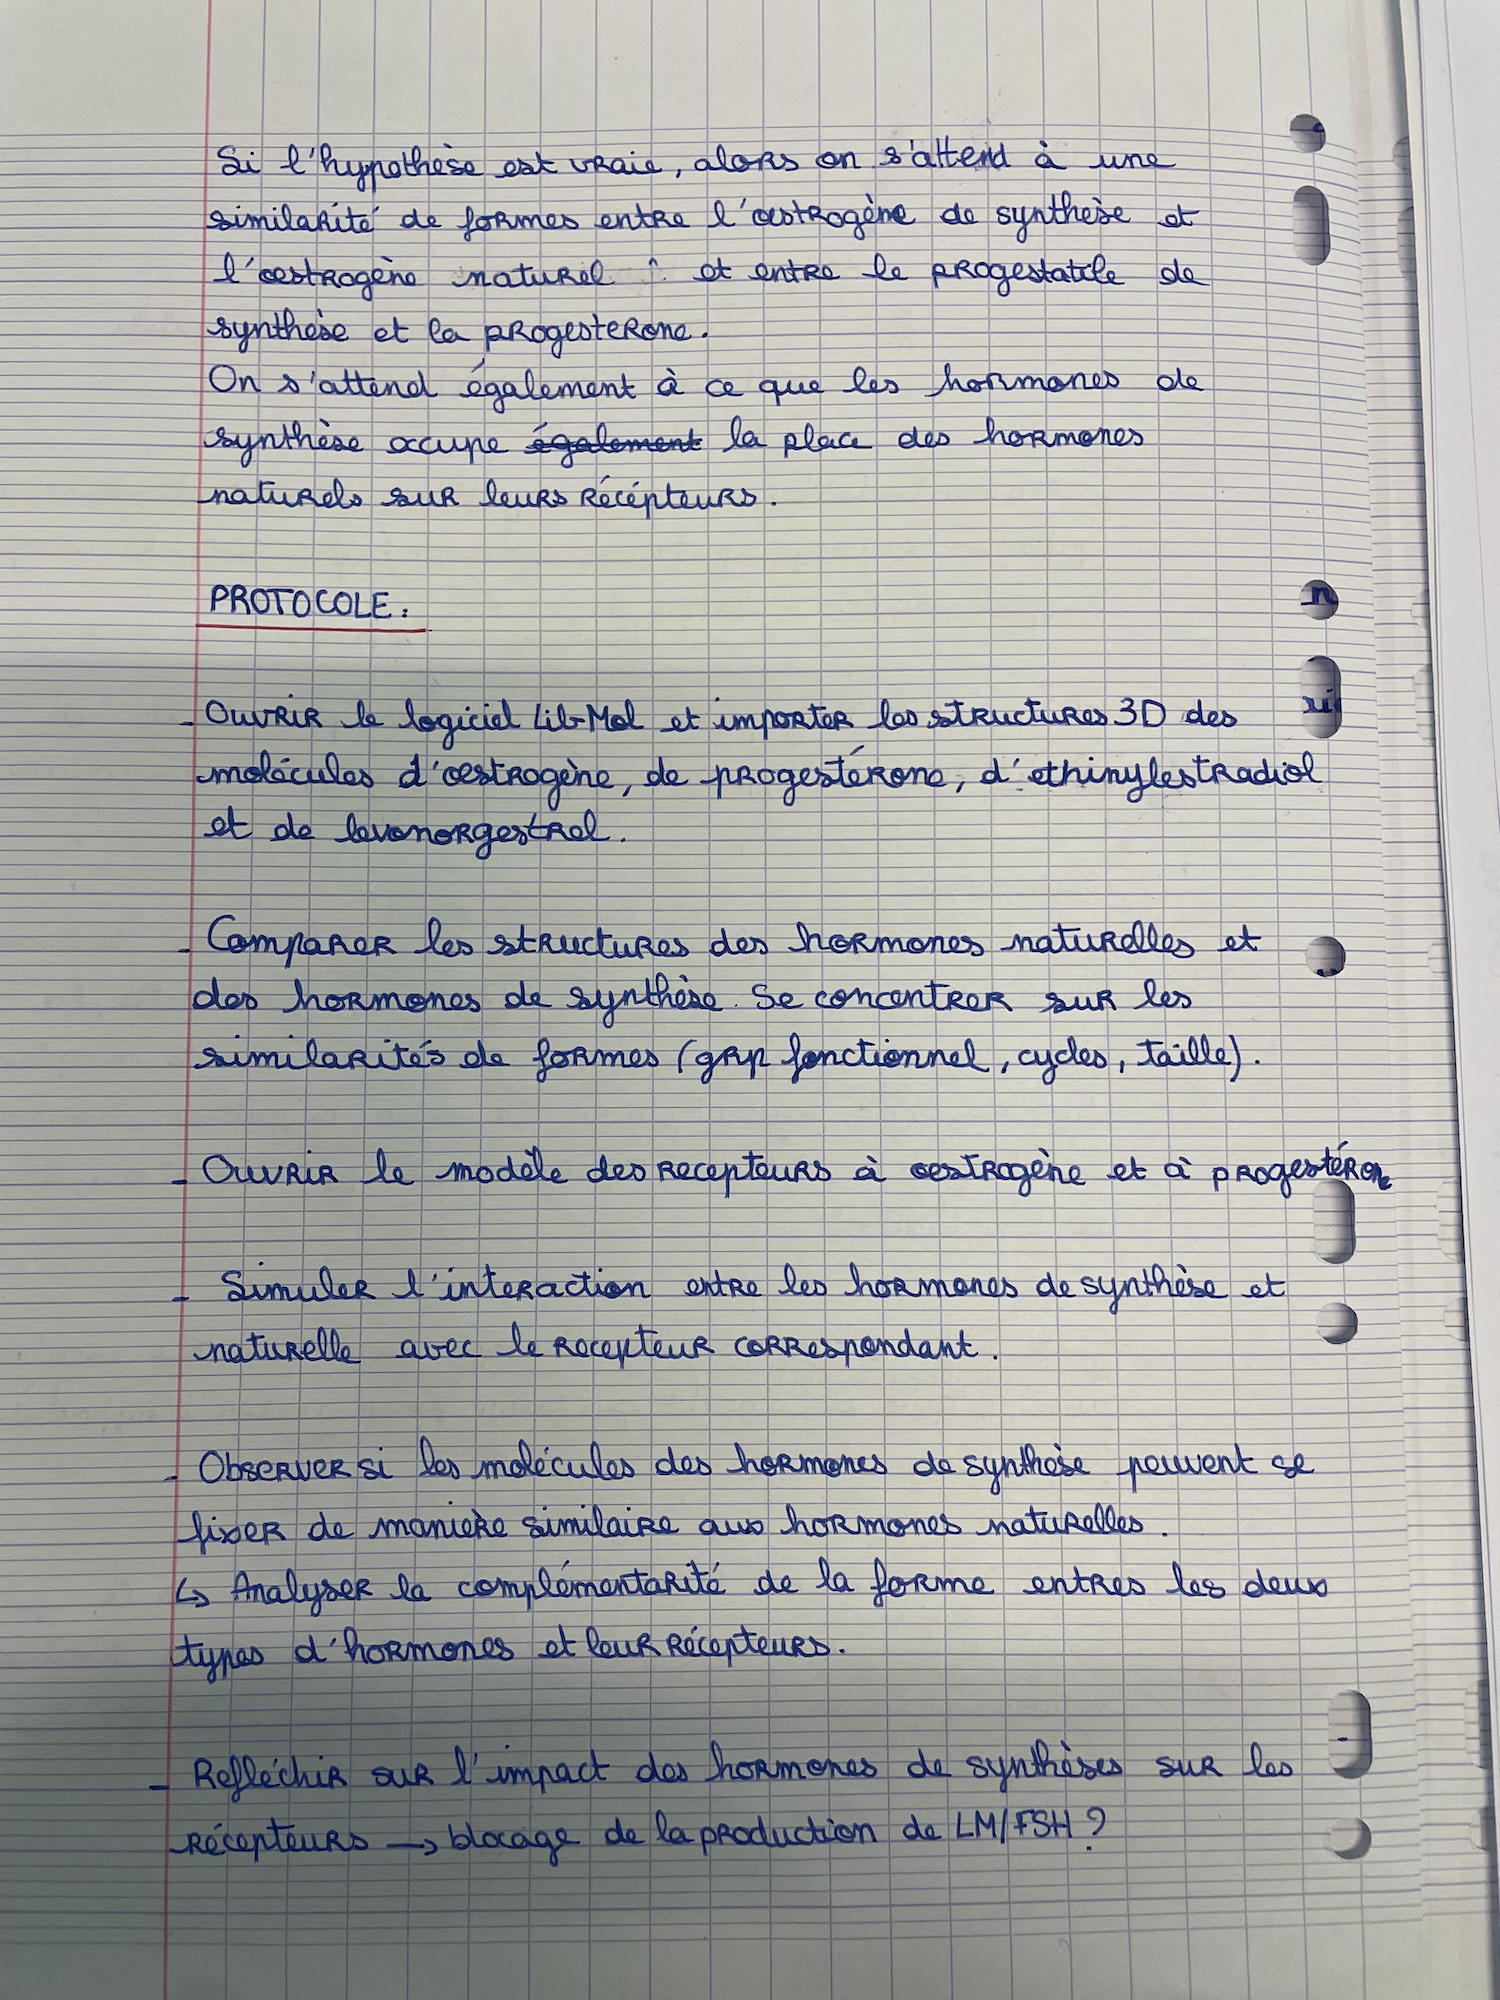 Si l'hypothèse est vraie, alors on s'attend à une
similarité de formes entre l'œstrogène de synthèse et
l'œstrogène naturel et entre le progestatife de
synthèse et la progesterone.
On s'attend également à ce que les hormones de
synthèse occupe également la place des hormones
naturels sur leurs récépteurs.
PROTOCOLE :
- Ouvrir le logiciel Lib-Mol et importer les structures 3D des
molécules d'œstrogène, de progestérone, d'ethinylestradiol
et de levonorgestrel.
- Comparer les structures des hormones naturelles et
des hormones de synthèse. Se concentrer sur les
similarités de formes (grp fonctionnel, cycles, taille).
- Ouvrir le modèle des recepteurs à œstrogène et à progestérone
- Simuler l'interaction entre les hormones de synthèse et
naturelle avec le recepteur correspondant.
- Observer si les molécules des hormones de synthèse peuvent se
fixer de manière similaire aux hormones naturelles.
↳ Analyser la complémentarité de la forme entres les deux
types d'hormones et leur récépteurs.
- Refléchir sur l'impact des hormones de synthèses sur les
récepteurs → blocage de la production de LM/FSH ?